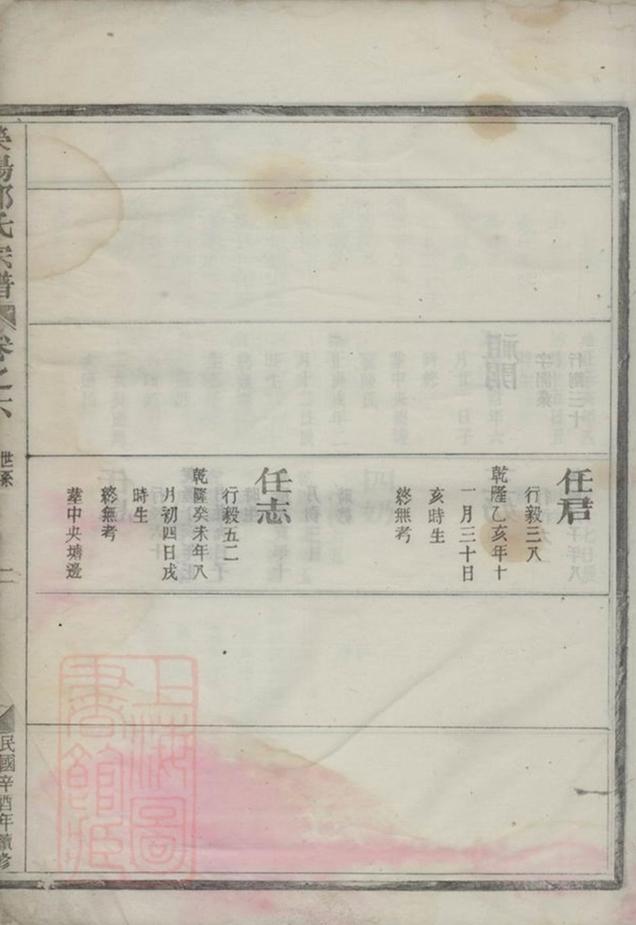 任君
行毅三八
乾隆乙亥年十
一月三十日
亥時生
終無考
任志
行毅五二
乾隆癸未年八
月初四日戌
時生
終無考
葬中央塘邊
滎陽鄭氏宗譜
卷之六
世系
二
民國辛酉年續修
上海圖書館藏